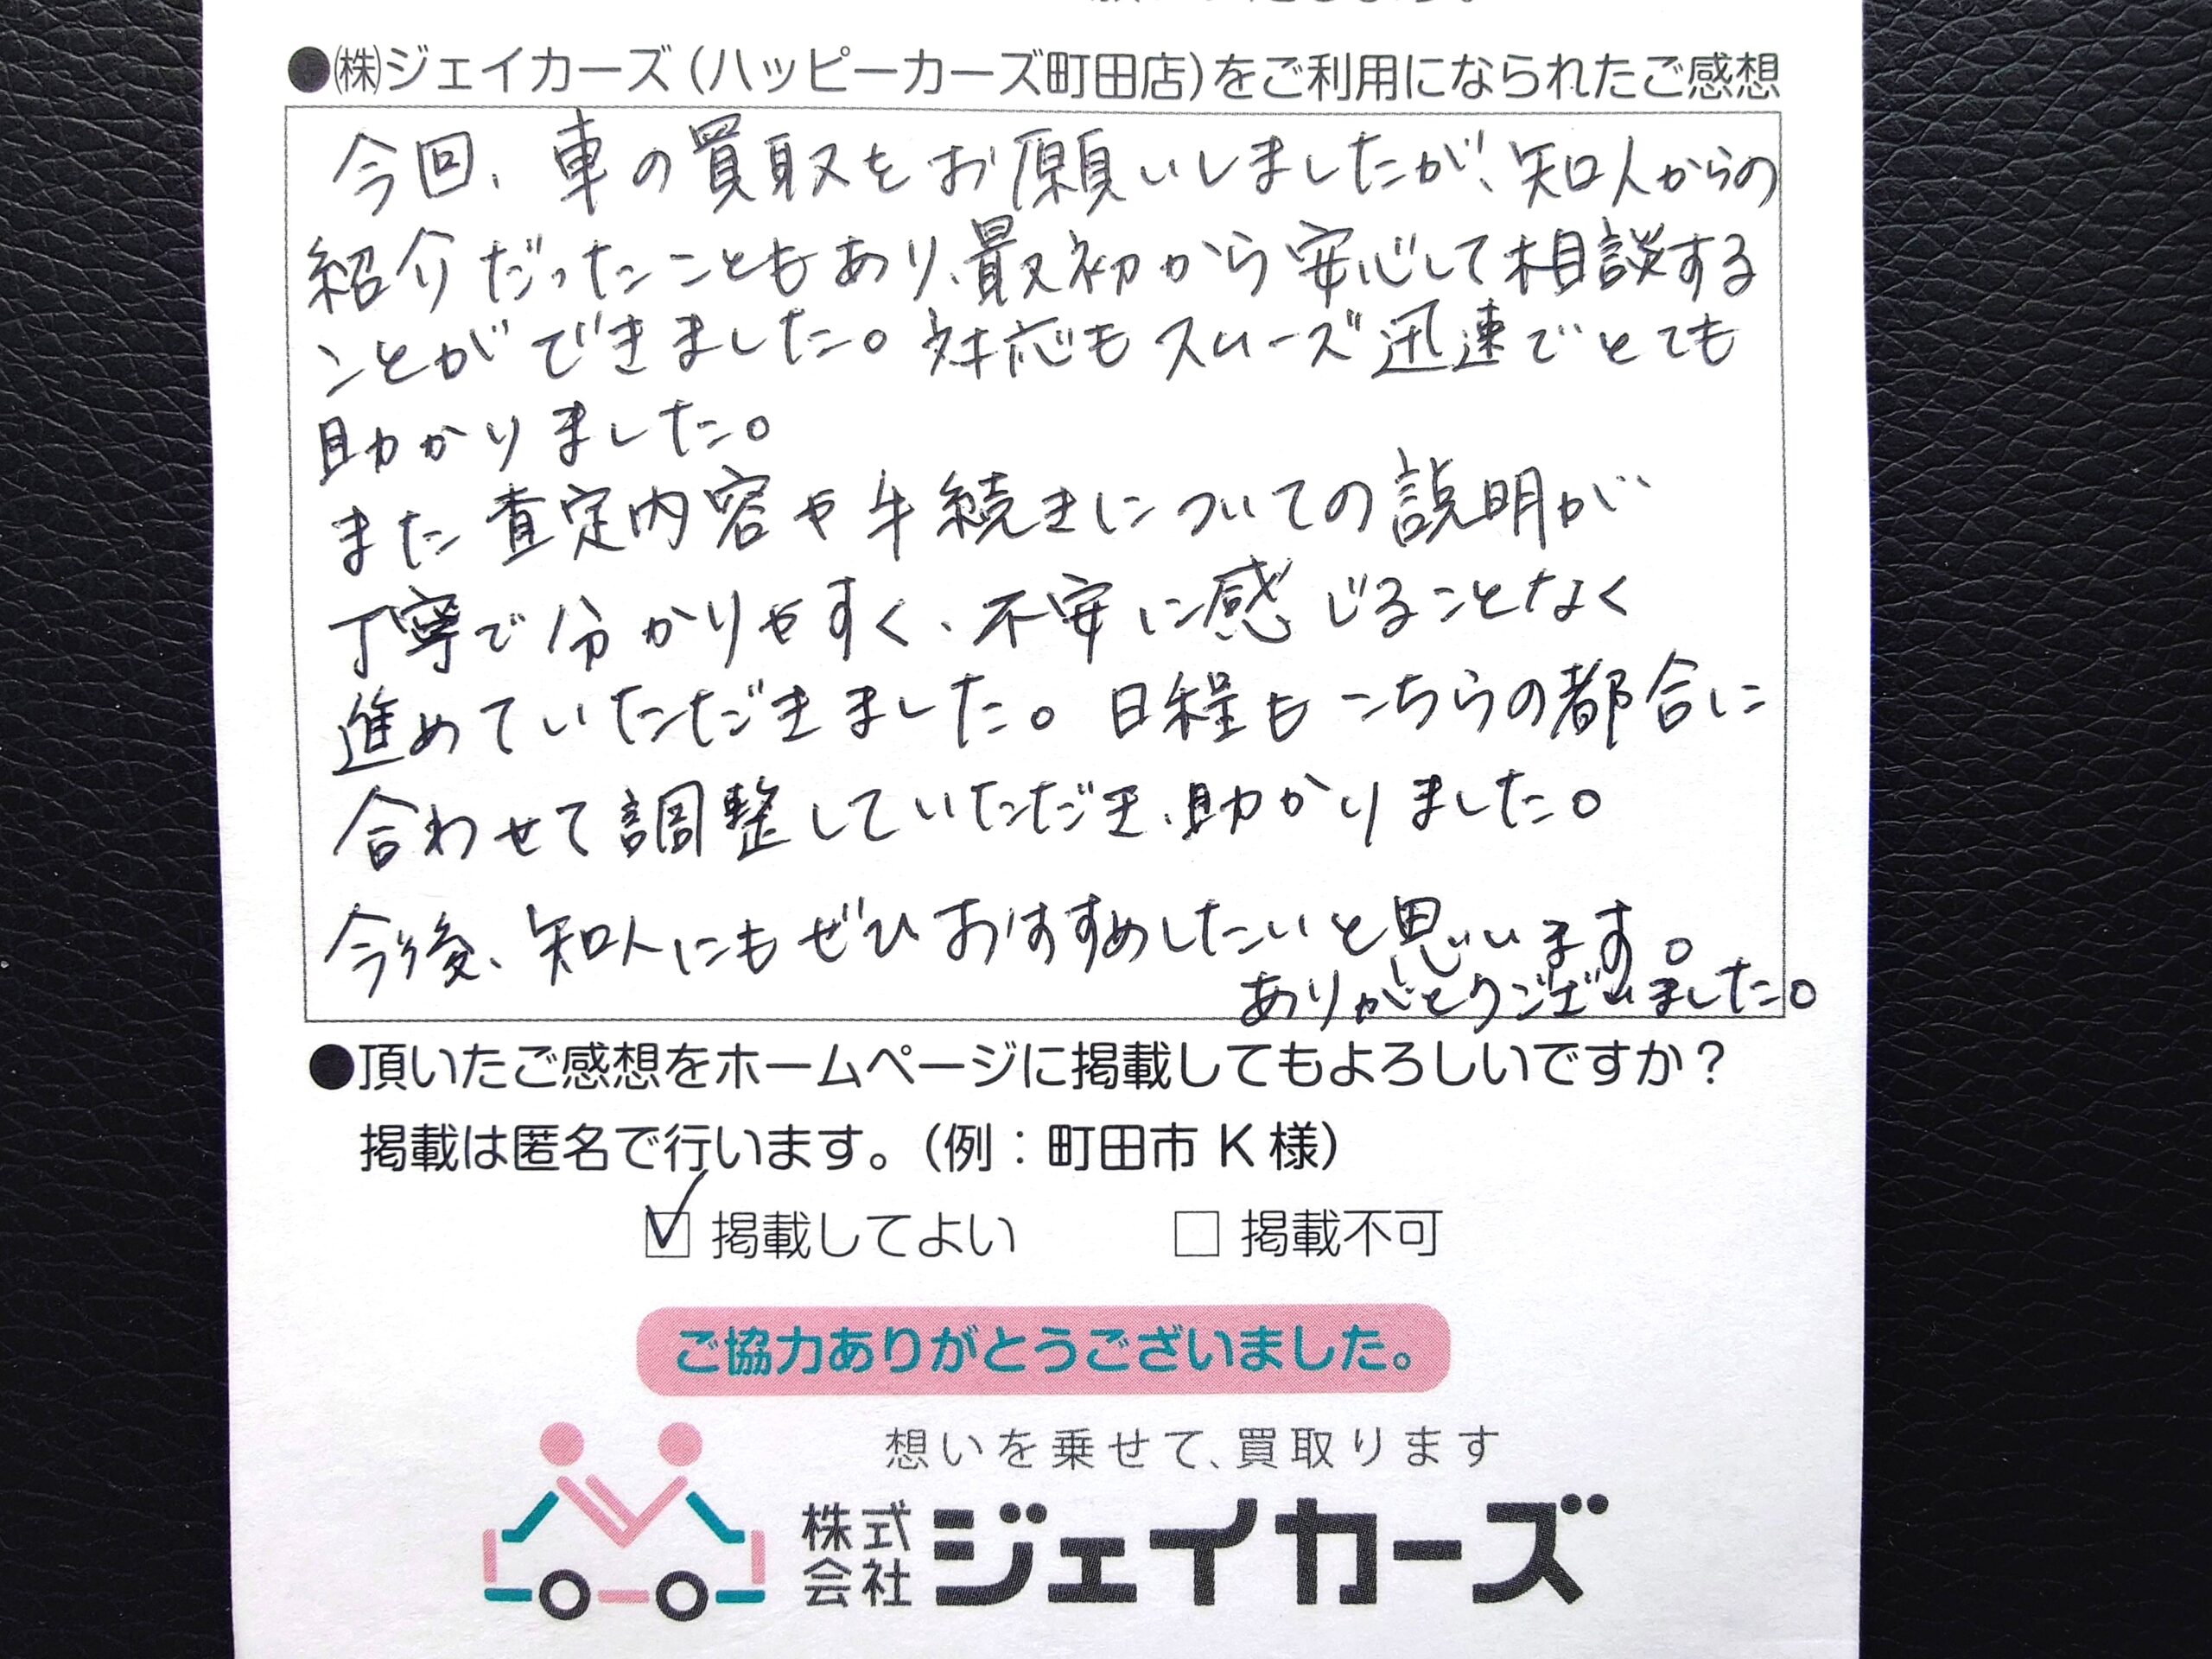 ●㈱ジェイカーズ（ハッピーカーズ町田店）をご利用になられたご感想
今回、車の買取をお願いしましたが、知人からの
紹介だったこともあり、最初から安心して相談する
ことができました。対応もスムーズ迅速でとても
助かりました。
また査定内容や手続きについての説明が
丁寧で分かりやすく、不安に感じることなく
進めていただきました。日程もこちらの都合に
合わせて調整していただき、助かりました。
今後、知人にもぜひおすすめしたいと思います。
ありがとうございました。
●頂いたご感想をホームページに掲載してもよろしいですか？
掲載は匿名で行います。（例：町田市 K 様）
☑ 掲載してよい □ 掲載不可
ご協力ありがとうございました。
想いを乗せて、買取ります
株式会社 ジェイカーズ